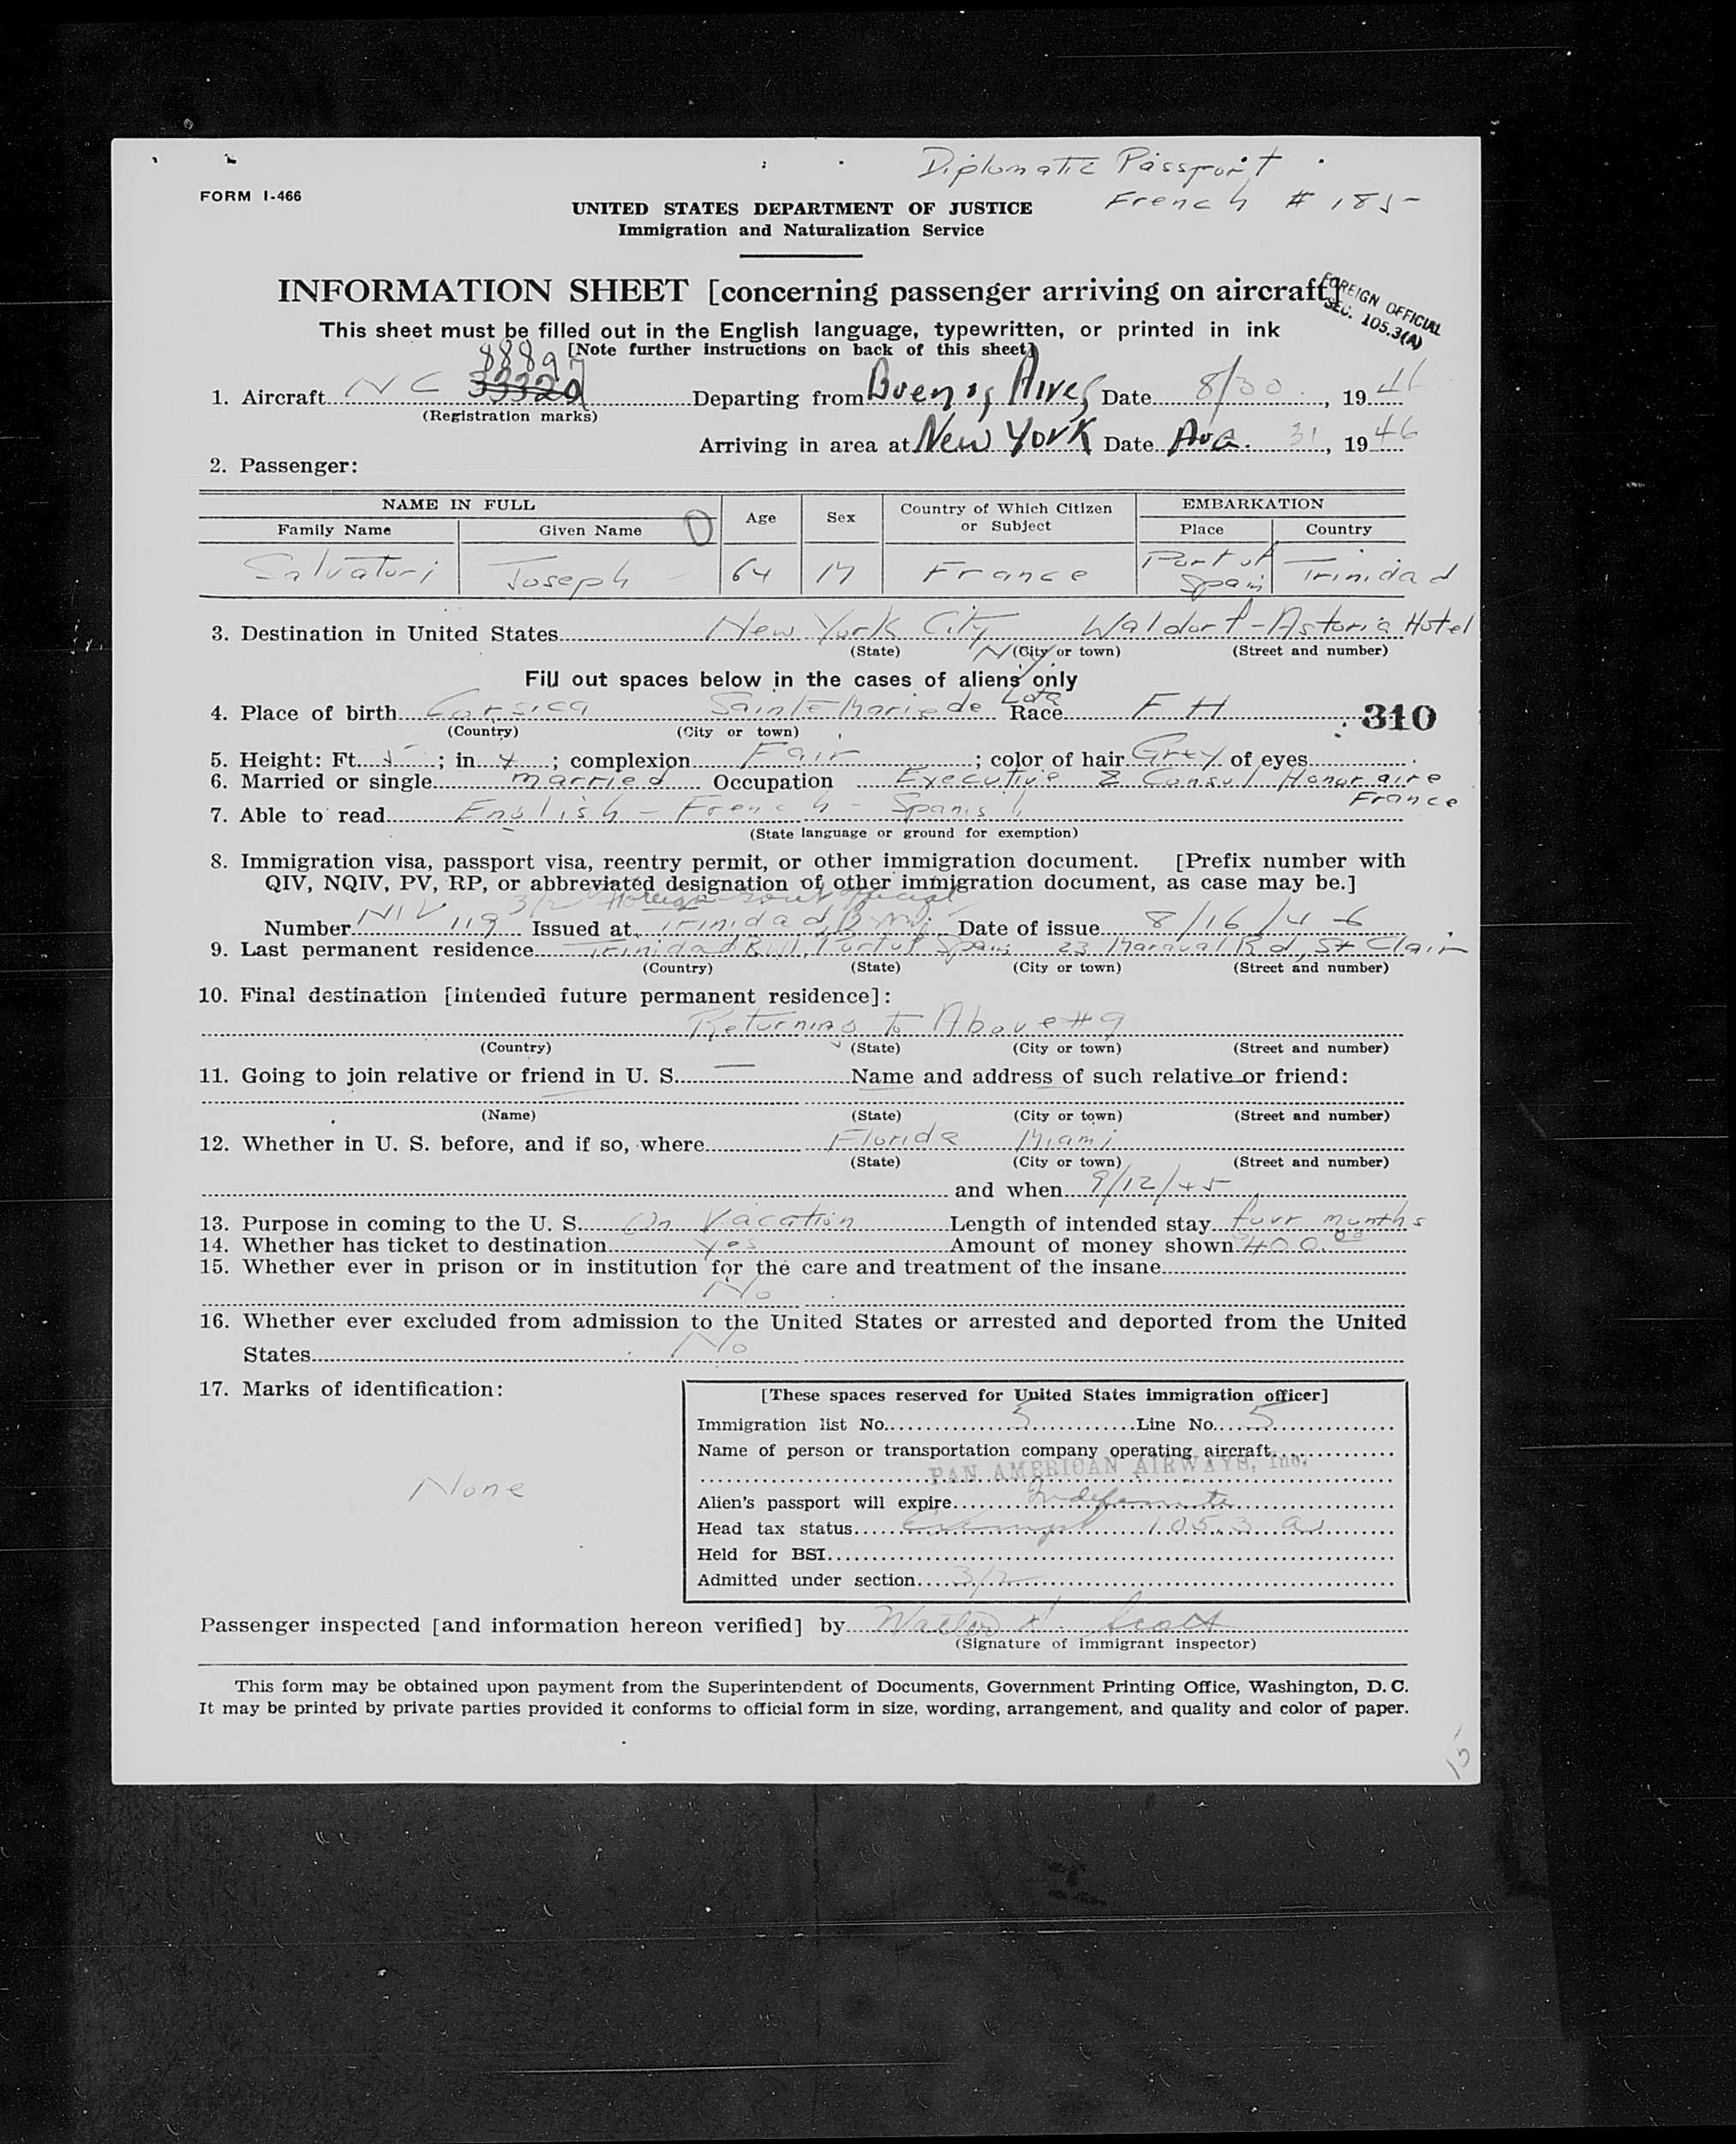 Diplomatic Passport
FORM I-466
French # 185-
UNITED STATES DEPARTMENT OF JUSTICE
Immigration and Naturalization Service
INFORMATION SHEET [concerning passenger arriving on aircraft]
FOREIGN OFFICIAL
SEC. 105.3(A)
This sheet must be filled out in the English language, typewritten, or printed in ink
[Note further instructions on back of this sheet]
1. Aircraft NC 33320 88897 Departing from Buenos Aires Date 8/30, 1946
(Registration marks)
Arriving in area at New York Date Aug. 31, 1946
2. Passenger:
NAME IN FULL Age Sex Country of Which Citizen or Subject EMBARKATION
Family Name Given Name Place Country
Salvatori Joseph 64 M France Port of Spain Trinidad
3. Destination in United States New York City N.Y. Waldorf-Astoria Hotel
(State) (City or town) (Street and number)
Fill out spaces below in the cases of aliens only
4. Place of birth Corsica Sainte Marie de Lota Race FH 310
(Country) (City or town)
5. Height: Ft. 5; in 4; complexion Fair; color of hair Grey of eyes
6. Married or single married Occupation Executive & Consul Honoraire France
7. Able to read English - French - Spanish
(State language or ground for exemption)
8. Immigration visa, passport visa, reentry permit, or other immigration document. [Prefix number with
QIV, NQIV, PV, RP, or abbreviated designation of other immigration document, as case may be.]
3/2 Foreign Govt Official
Number NIV 119 Issued at Trinidad, B.W.I. Date of issue 8/16/46
9. Last permanent residence Trinidad B.W.I. Port of Spain 23 Maraval Rd, St Clair
(Country) (State) (City or town) (Street and number)
10. Final destination [intended future permanent residence]:
Returning to Above #9
(Country) (State) (City or town) (Street and number)
11. Going to join relative or friend in U. S. — Name and address of such relative or friend:
(Name) (State) (City or town) (Street and number)
12. Whether in U. S. before, and if so, where Florida Miami
(State) (City or town) (Street and number)
and when 9/12/45
13. Purpose in coming to the U. S. On Vacation Length of intended stay four months
14. Whether has ticket to destination yes Amount of money shown 400.00
15. Whether ever in prison or in institution for the care and treatment of the insane
No
16. Whether ever excluded from admission to the United States or arrested and deported from the United
States No
17. Marks of identification:
None
[These spaces reserved for United States immigration officer]
Immigration list No. 5 Line No. 5
Name of person or transportation company operating aircraft
PAN AMERICAN AIRWAYS, Inc.
Alien's passport will expire Indefinite
Head tax status Exempt 105.3 a
Held for BSI
Admitted under section 3/2
Passenger inspected [and information hereon verified] by Walter Scott
(Signature of immigrant inspector)
This form may be obtained upon payment from the Superintendent of Documents, Government Printing Office, Washington, D. C.
It may be printed by private parties provided it conforms to official form in size, wording, arrangement, and quality and color of paper.
15